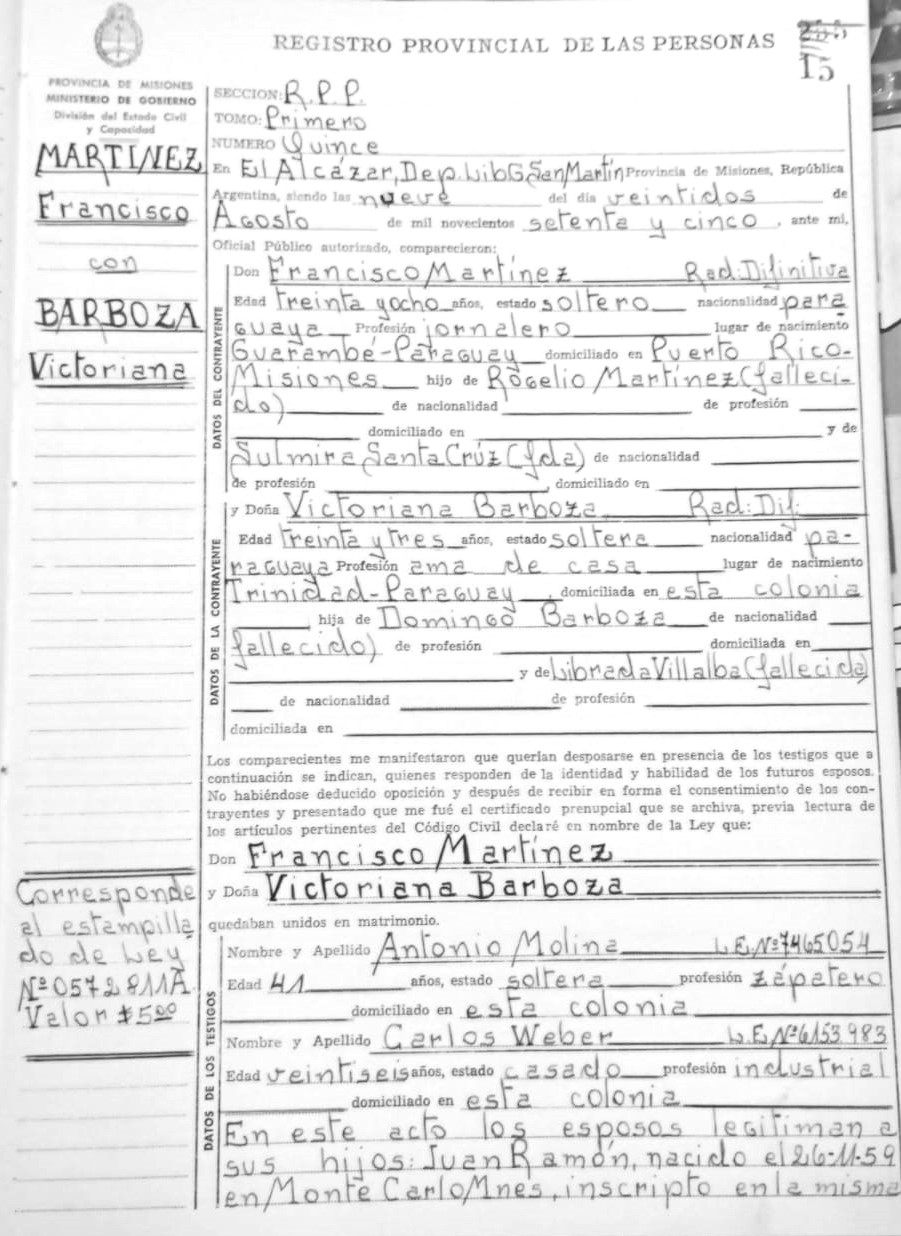 REGISTRO PROVINCIAL DE LAS PERSONAS
15
PROVINCIA DE MISIONES
MINISTERIO DE GOBIERNO
División del Estado Civil
y Capacidad
MARTÍNEZ
Francisco
con
BARBOZA
Victoriana
Corresponde
al estampilla
do de Ley
Nº 0572811A
Valor $500
SECCION: R.P.P.
TOMO: Primero
NUMERO Quince
En El Alcázar, Dep. Lib G. San Martín Provincia de Misiones, República
Argentina, siendo las nueve del día veintidos de
Agosto de mil novecientos setenta y cinco, ante mi,
Oficial Público autorizado, comparecieron:
DATOS DEL CONTRAYENTE
Don Francisco Martínez Rad: Difinitiva
Edad treinta y ocho años, estado soltero nacionalidad para
guaya Profesión jornalero lugar de nacimiento
Guarambé-Paraguay domiciliado en Puerto Rico-
Misiones hijo de Rogelio Martínez (falleci-
do) de nacionalidad de profesión
domiciliado en y de
Sulmira Santa Crúz (fda) de nacionalidad
de profesión domiciliado en
DATOS DE LA CONTRAYENTE
y Doña Victoriana Barboza Rad: Dif:
Edad treinta y tres años, estado soltera nacionalidad pa-
raguaya Profesión ama de casa lugar de nacimiento
Trinidad-Paraguay, domiciliada en esta colonia
hija de Domingo Barboza de nacionalidad
fallecido) de profesión domiciliado en
y de Librada Villalba (fallecida)
de nacionalidad de profesión
domiciliada en
Los comparecientes me manifestaron que querían desposarse en presencia de los testigos que a
continuación se indican, quienes responden de la identidad y habilidad de los futuros esposos.
No habiéndose deducido oposición y después de recibir en forma el consentimiento de los con-
trayentes y presentado que me fué el certificado prenupcial que se archiva, previa lectura de
los artículos pertinentes del Código Civil declaré en nombre de la Ley que:
Don Francisco Martínez
y Doña Victoriana Barboza
quedaban unidos en matrimonio.
DATOS DE LOS TESTIGOS
Nombre y Apellido Antonio Molina L.E.Nº 7465054
Edad 41 años, estado soltera profesión zápatero
domiciliado en esta colonia
Nombre y Apellido Carlos Weber L.E.Nº 6153983
Edad veintiseis años, estado casado profesión industrial
domiciliado en esta colonia
En este acto los esposos legitiman a
sus hijos: Juan Ramón, nacido el 26-11-59
en Monte Carlo Mnes, inscripto en la misma